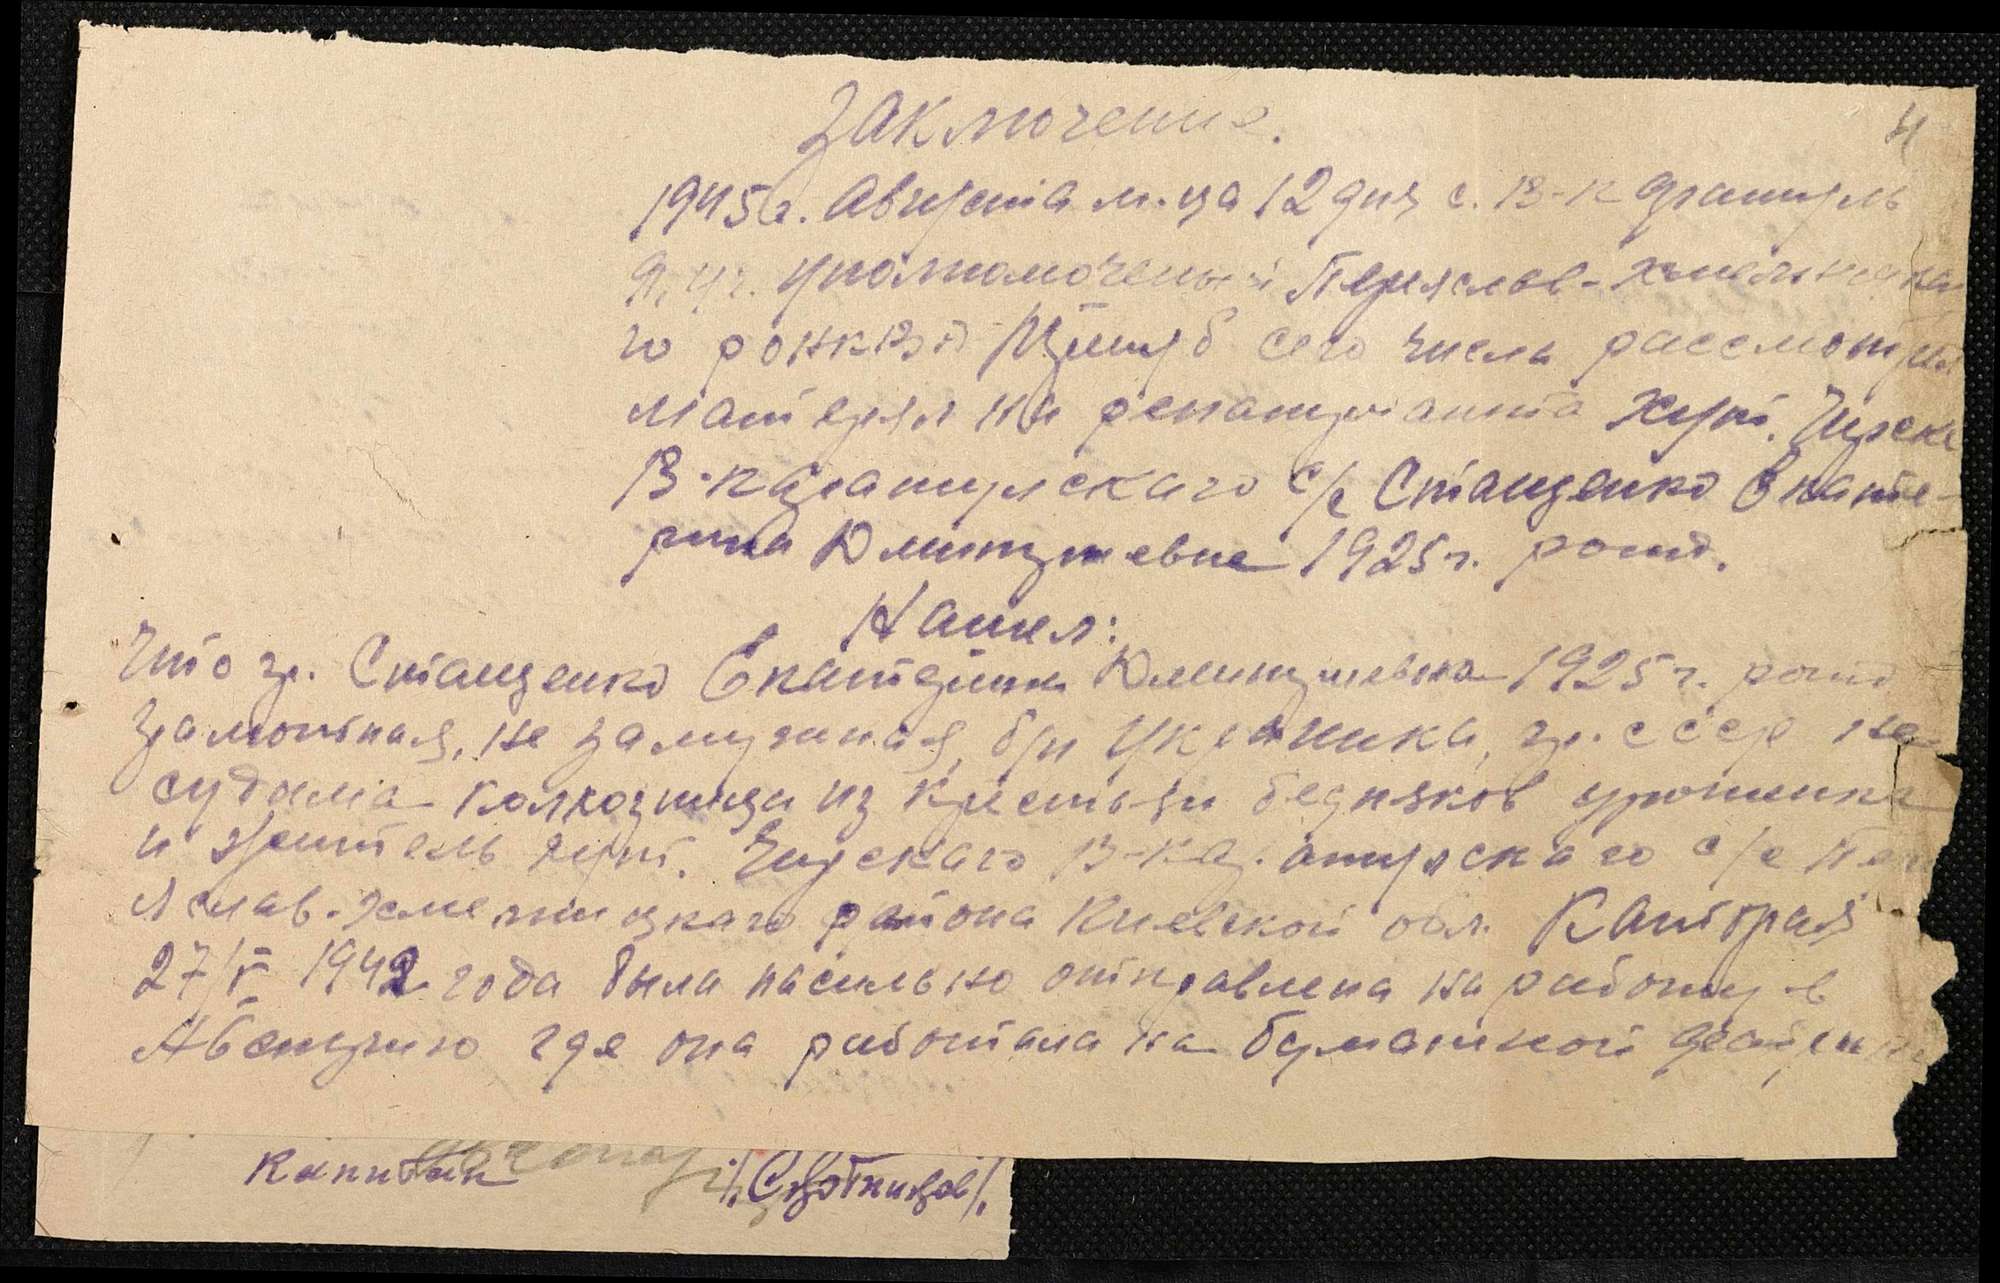 Заключение.
4
1945 г. Августа м-ца 12 дня с. В-К
уполномоченый Переяслав-Хмельницка
го РОНКВД сего числа рассмотрел
материял на репатрианта хут.
В-Каратульскаго с/с Стащенко Екате-
рина Дмитриевне 1925 г. рожд.
Нашел:
Что гр. Стащенко Екатерина Дмитриевна 1925 г. рожд
грамотная, не замужная, б/п Украинка, гр. СССР не
судима колхозница из крестьян бедняков урошенка
и житель хут. В-Каратульскаго с/с Пере
яслав-Хмельницкаго района Киевской обл. Каторая
27/V 1942 года была насильно отправлена на работу в
Австрию где она работала на бумажной фабрики
Капитан /Сиротницов/.